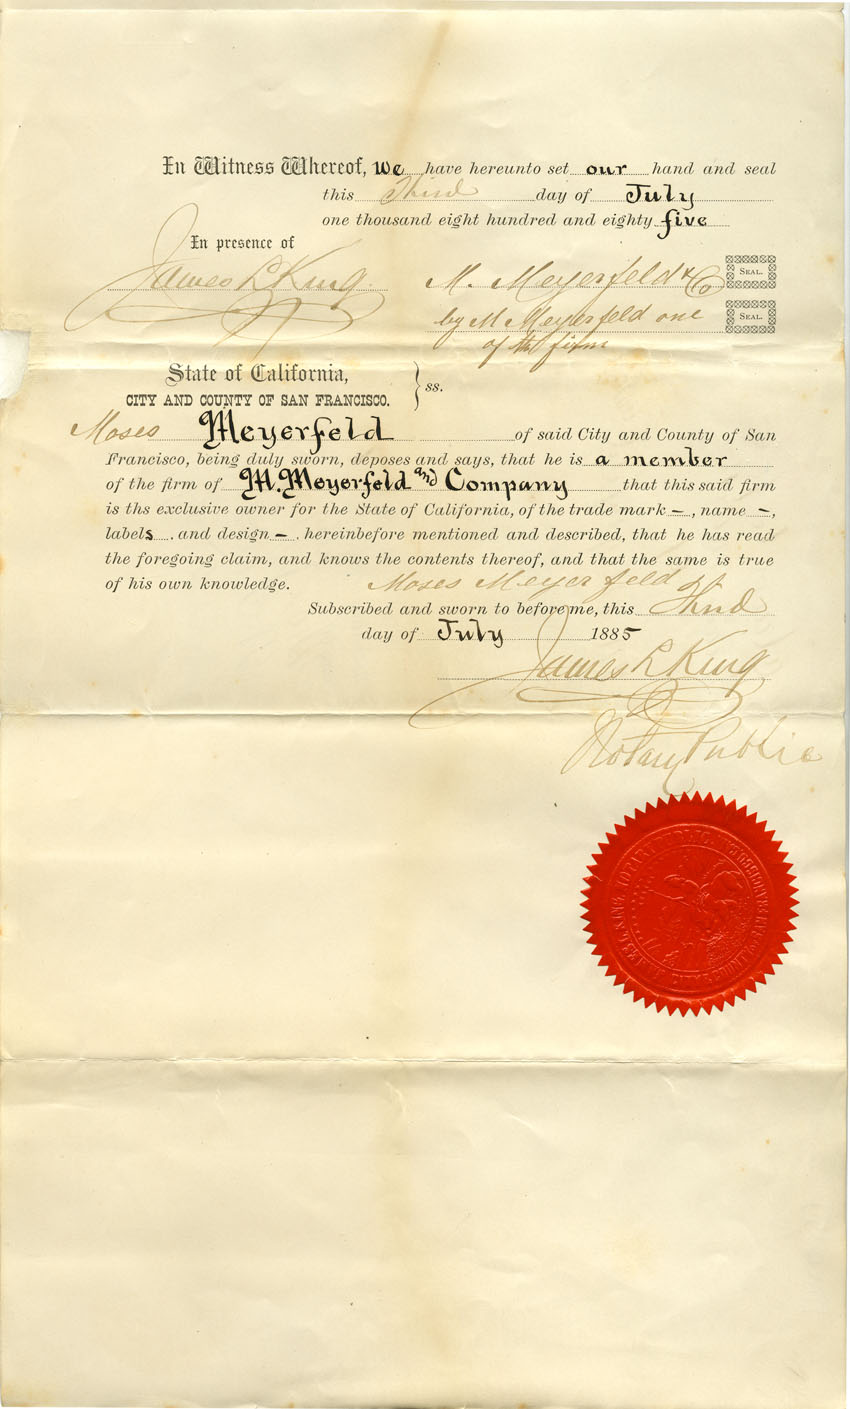 In Witness Whereof, we have hereunto set our hand and seal
this Third day of July
one thousand eight hundred and eighty five
In presence of
James L King
M. Meyerfeld & Co
SEAL.
by M Meyerfeld one
SEAL.
of the firm
State of California,
CITY AND COUNTY OF SAN FRANCISCO.
ss.
Moses Meyerfeld of said City and County of San
Francisco, being duly sworn, deposes and says, that he is a member
of the firm of M. Meyerfeld and Company that this said firm
is ths exclusive owner for the State of California, of the trade mark –, name –,
labels and design – hereinbefore mentioned and described, that he has read
the foregoing claim, and knows the contents thereof, and that the same is true
of his own knowledge. Moses Meyerfeld
Subscribed and sworn to before me, this Third
day of July 1885
James L King
Notary Public